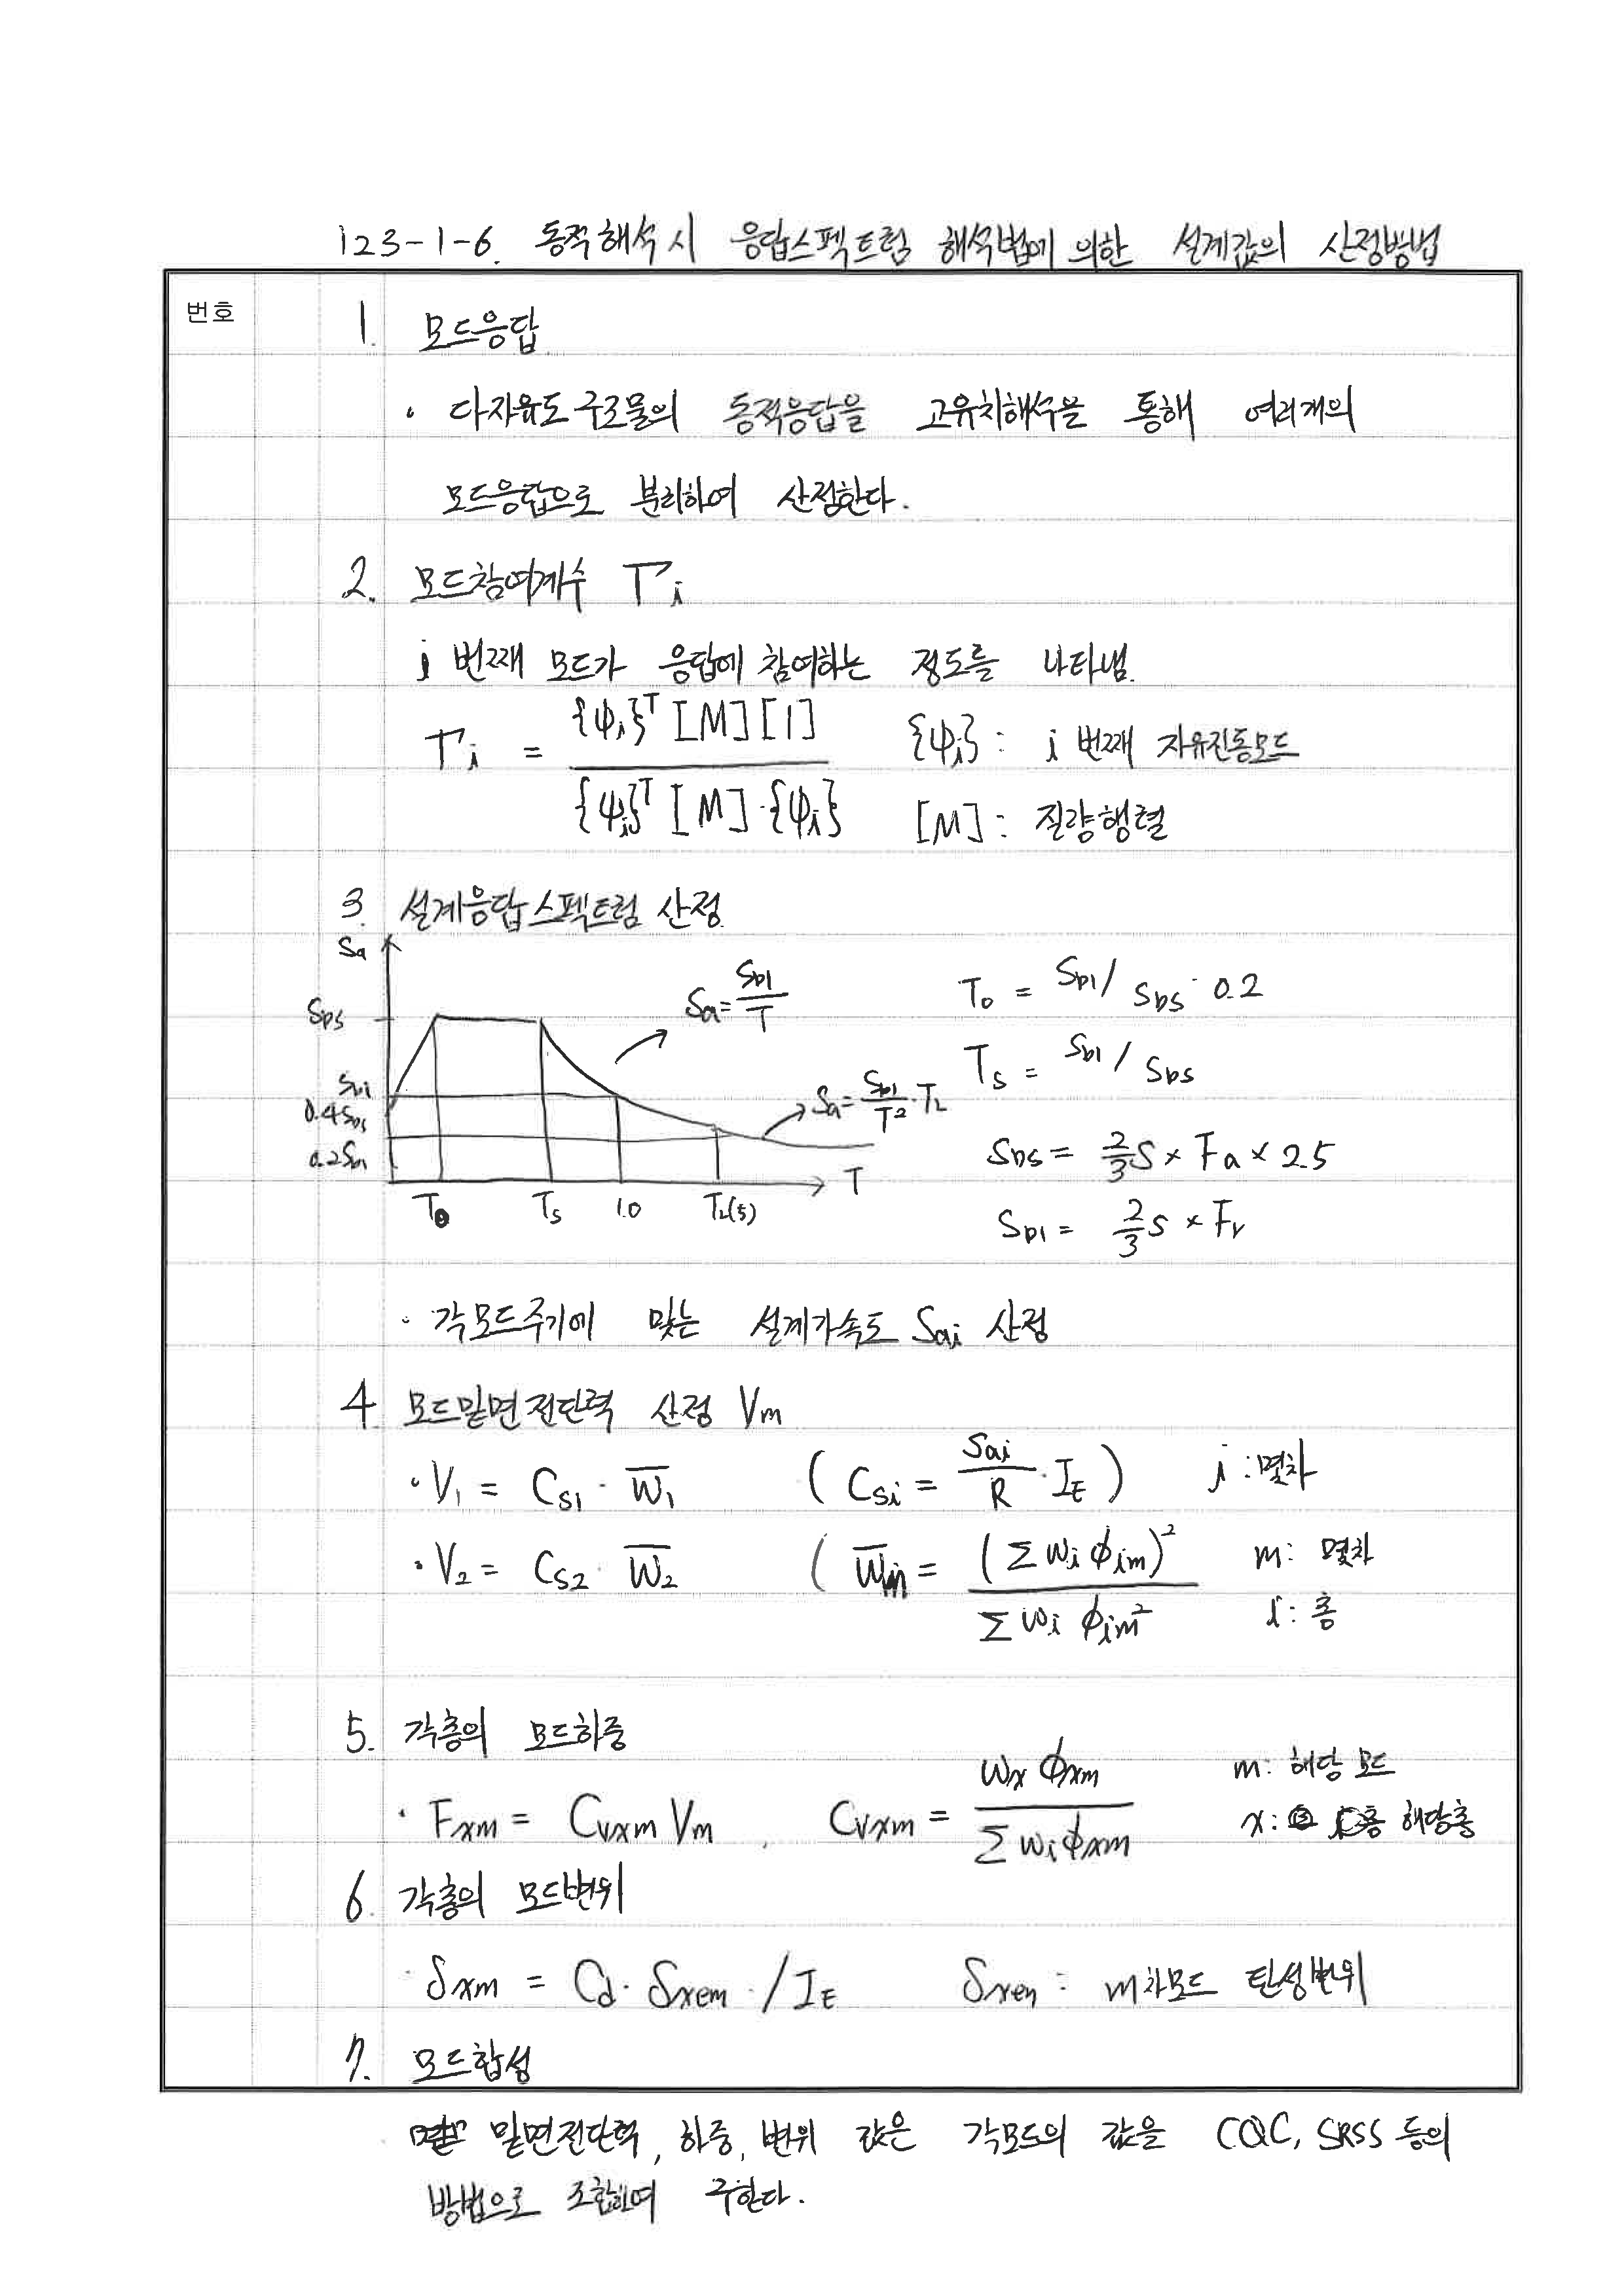 123-1-6. 동적해석시 응답스펙트럼 해석법에 의한 설계값의 산정방법
번호
1. 모드응답
· 다자유도 구조물의 동적응답을 고유치해석을 통해 여러개의
모드응답으로 분리하여 산정한다.
2. 모드참여계수 Γi
i 번째 모드가 응답에 참여하는 정도를 나타냄.
Γi = {ψi}^T [M][1] / {ψi}^T [M]·{ψi}
{ψi} : i 번째 자유진동모드
[M] : 질량행렬
3. 설계응답스펙트럼 산정
Sa
SDS
SD1
0.4SDS
0.2SD1
T0 TS 1.0 TL(5) T
Sa = SD1/T
Sa = SD1/T² · TL
T0 = SD1/SDS · 0.2
TS = SD1/SDS
SDS = 2/3 S × Fa × 2.5
SD1 = 2/3 S × Fv
· 각모드주기에 맞는 설계가속도 Sai 산정
4. 모드밑면전단력 산정 Vm
· V1 = CS1 · W̄1 ( CSi = Sai/R · IE ) i : 몇차
· V2 = CS2 · W̄2 ( W̄m = (Σ wi ϕim)² / Σ wi ϕim² m : 몇차
i : 층
5. 각층의 모드하중
· Fxm = Cvxm Vm , Cvxm = wx ϕxm / Σ wi ϕxm
m : 해당 모드
x : 해당층
6. 각층의 모드변위
· δxm = Cd · δxem / IE δxem : m차모드 탄성변위
7. 모드합성
밑면전단력, 하중, 변위 값은 각모드의 값을 CQC, SRSS 등의
방법으로 조합하여 구한다.